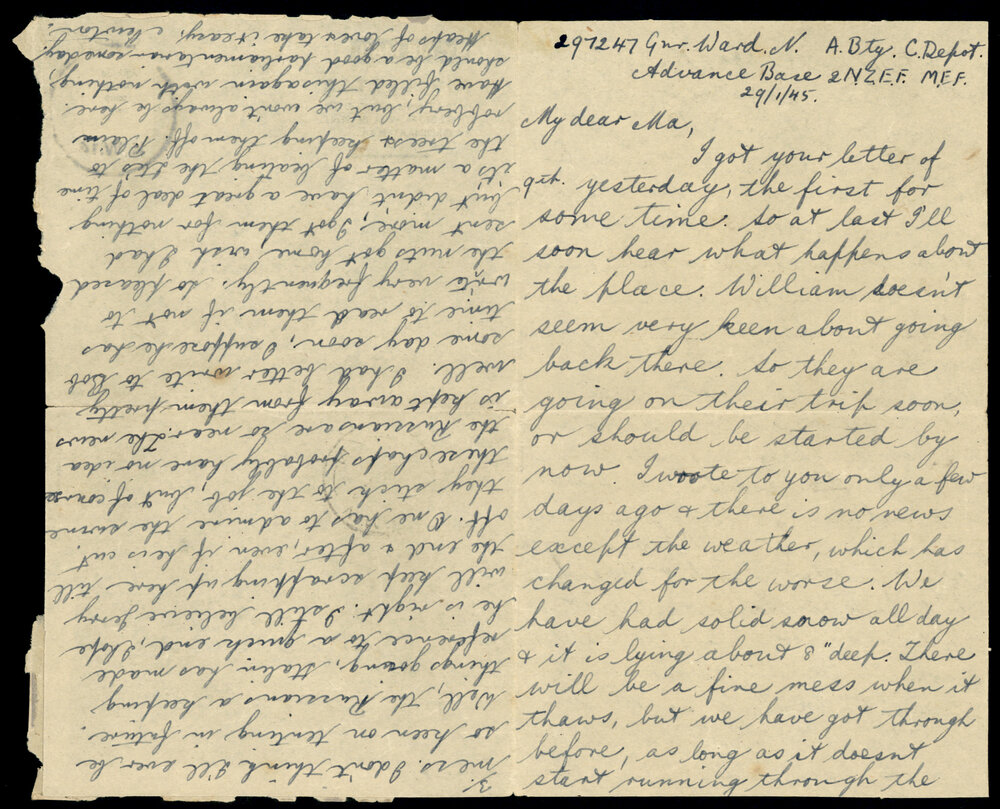 297247 Gnr. Ward. N. A. Bty. C. Depot.
Advance Base 2 N.Z.E.F. M.E.F.
29/1/45.
My dear Ma,
I got your letter of
9th. yesterday, the first for
some time. So at last I'll
soon hear what happens about
the place. William doesn't
seem very keen about going
back there. So they are
going on their trip soon,
or should be started by
now. I wrote to you only a few
days ago & there is no news
except the weather, which has
changed for the worse. We
have had solid snow all day
& it is lying about 8" deep. There
will be a fine mess when it
thaws, but we have got through
before, as long as it doesn't
start running through the
3.
mess. I don't think I'll ever be
so keen on tenting in future.
Well, the Russians a keeping
things going, Stalin has made
reference to a quick end, I hope
he is right. I still believe Jerry
will keep scrapping up here till
the end & after, even if he is cut
off. One has to admire the
they stick to the job, but of course
these chaps probably have no idea
the Russians are so near. The news
is kept away from them pretty
well. I had better write to Bob
some day soon, I suppose he has
time to read them if not to
write very frequently. So pleased
the nuts got home, wish I had
sent more, I got them for nothing
but didn't have a great deal of time
it's a matter of beating the Ites to
the trees & keeping them off. Plain
robbery, but we won't always be here.
Have filled this again with nothing,
should be a good parliamentarian someday.
Heaps of love & take it easy, Newton.